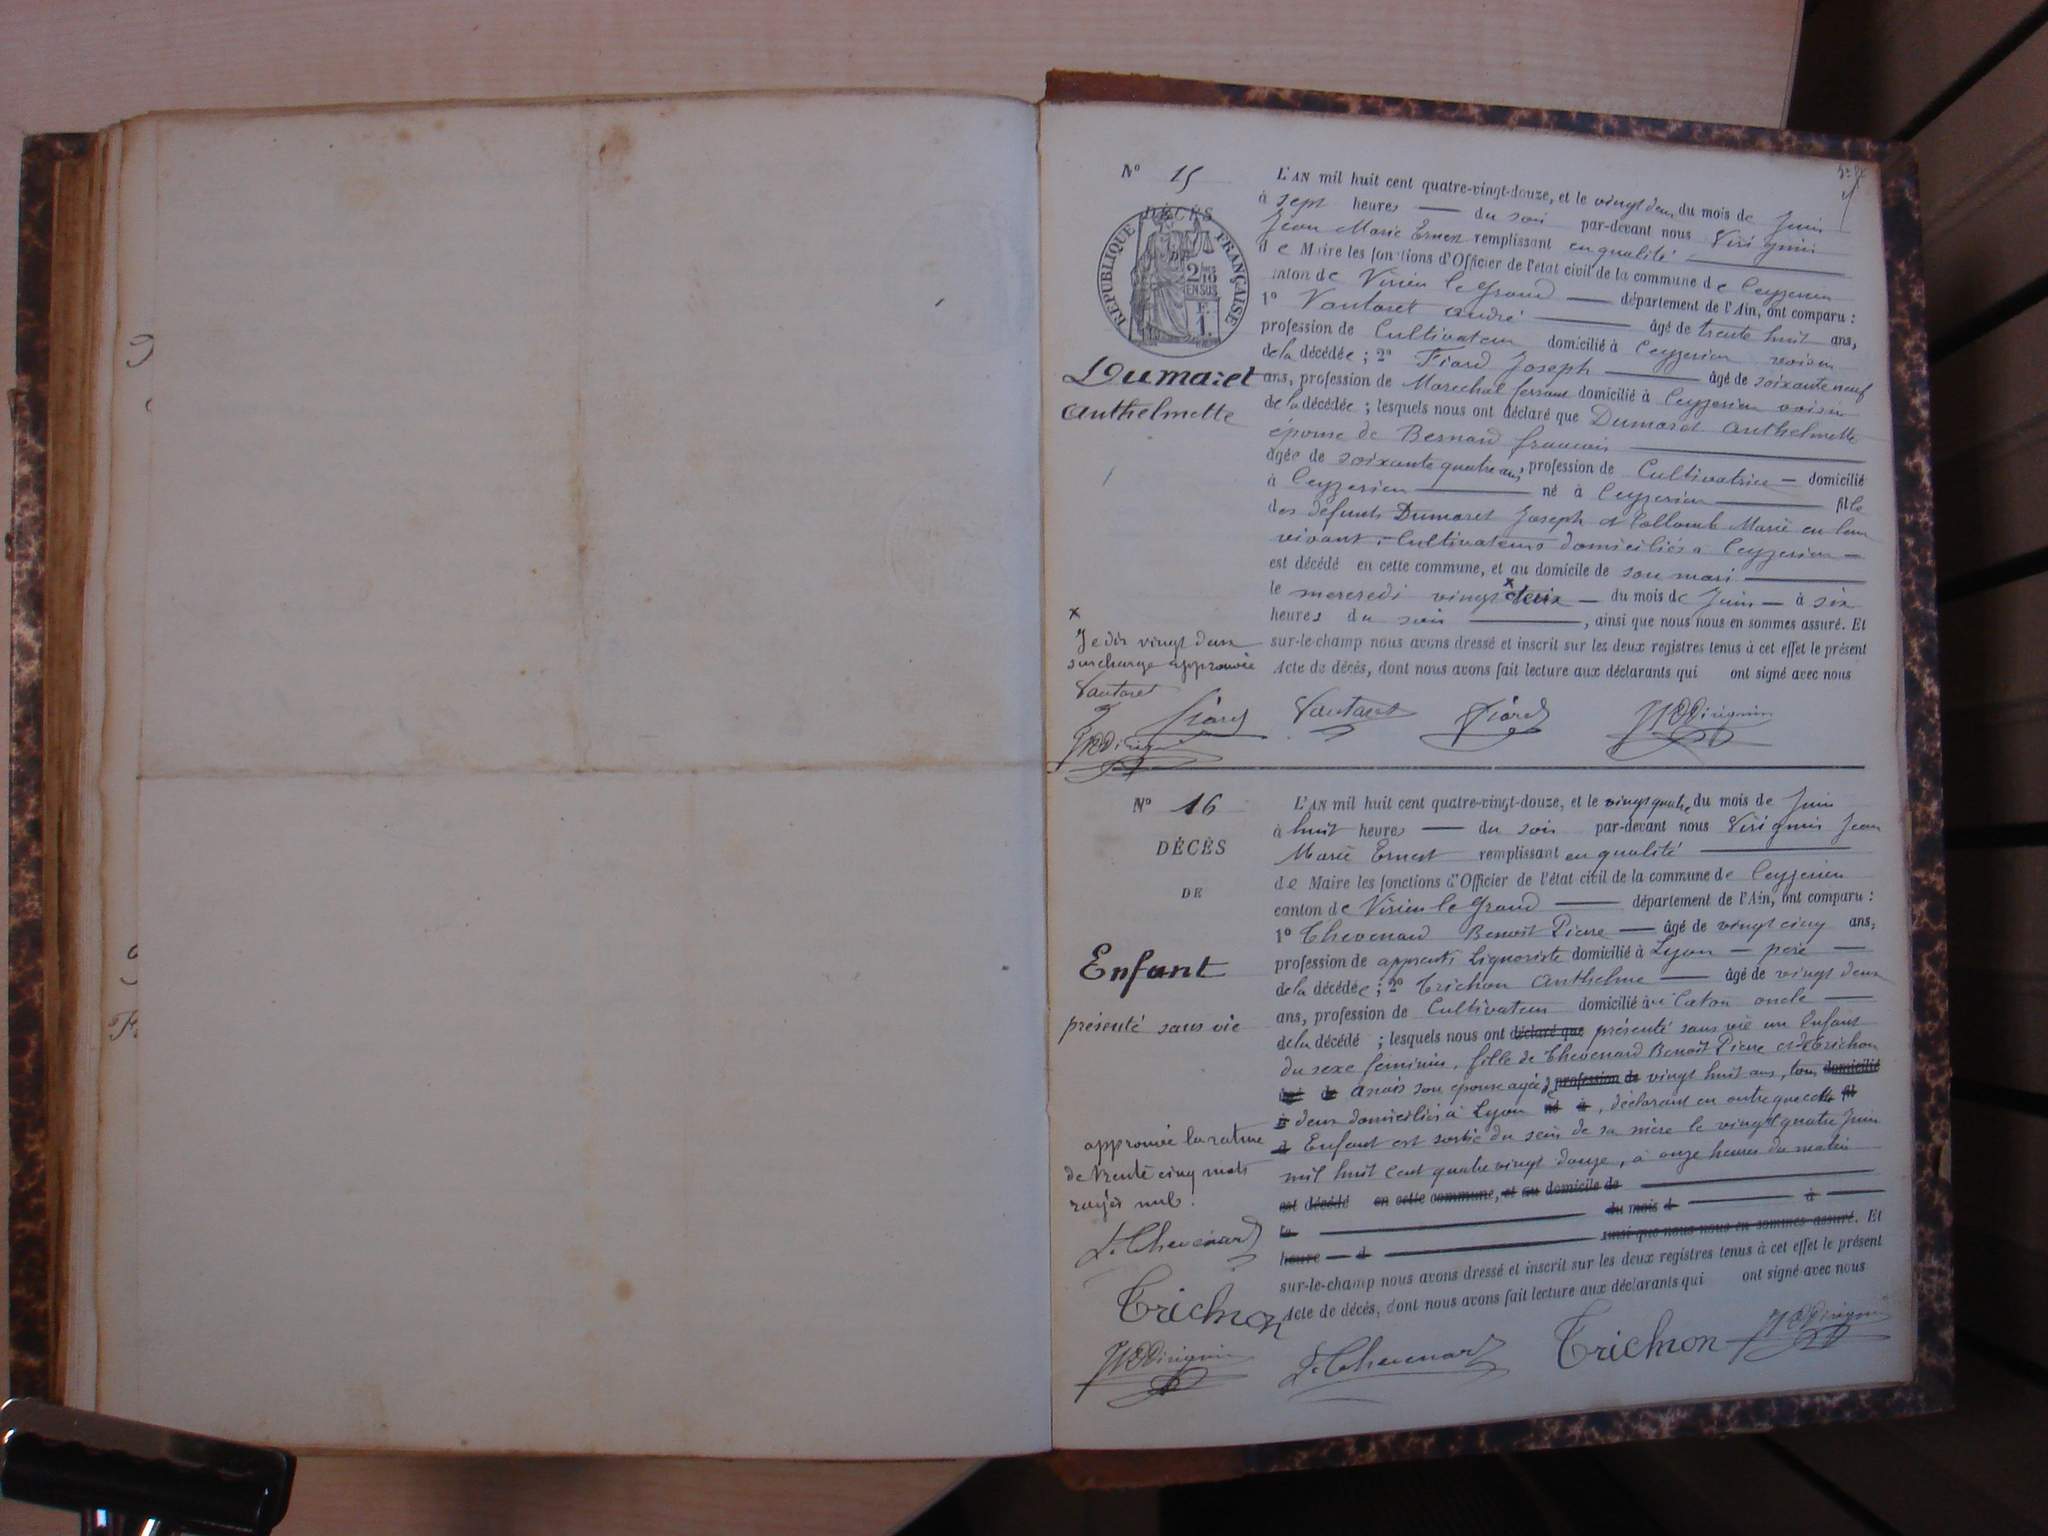 N° 15
DÉCÈS
RÉPUBLIQUE FRANÇAISE
2/10
EN SUS
F.
1.
Dumaret
Anthelmette
L'AN mil huit cent quatre-vingt-douze, et le vingt deux du mois de Juin
à sept heures du soir par-devant nous Virignin
Jean Marie Ernest remplissant en qualité
de Maire les fonctions d'Officier de l'état civil de la commune de Ceyzerieu
canton de Virieu le Grand département de l'Ain, ont comparu :
1° Vautaret André âgé de trente huit ans,
profession de Cultivateur domicilié à Ceyzerieu voisin
de la décédée ; 2° Fiard Joseph âgé de soixante neuf
ans, profession de Marechal ferrant domicilié à Ceyzerieu voisin
de la décédée ; lesquels nous ont déclaré que Dumaret Anthelmette
épouse de Bernard françois
âgée de soixante quatre ans, profession de Cultivatrice domicilié
à Ceyzerieu né à Ceyzerieu fille
des défunts Dumaret Joseph et Collomb Marie en leur
vivant Cultivateurs domiciliés à Ceyzerieu
est décédé en cette commune, et au domicile de son mari
le mercredi vingt x deux du mois de Juin à six
heures du soir , ainsi que nous nous en sommes assuré. Et
sur-le-champ nous avons dressé et inscrit sur les deux registres tenus à cet effet le présent
Acte de décès, dont nous avons fait lecture aux déclarants qui ont signé avec nous
x
Je dis vingt deux
surcharge approuvée
Vautaret
Fiard Vautaret Fiard JM Virignin
JM Virignin
N° 16
DÉCÈS
DE
Enfant
présenté sans vie
L'AN mil huit cent quatre-vingt-douze, et le vingt quatre du mois de Juin
à huit heures du soir par-devant nous Virignin Jean
Marie Ernest remplissant en qualité
de Maire les fonctions d'Officier de l'état civil de la commune de Ceyzerieu
canton de Virieu le Grand département de l'Ain, ont comparu :
1° Thevenard Benoît Pierre âgé de vingt cinq ans,
profession de apprenti Liquoriste domicilié à Lyon père
de la décédée ; 2° Trichon Anthelme âgé de vingt deux
ans, profession de Cultivateur domicilié à oncle
de la décédé ; lesquels nous ont déclaré que présenté sans vie un Enfant
du sexe féminin, fille de Thevenard Benoît Pierre et de Trichon
âgé de Anaïs son épouse agée de profession de vingt huit ans, tous domicilié
à deux domiciliés à Lyon né à , déclarant en outre que cette fil
d Enfant est sortie du sein de sa mère le vingt quatre Juin
mil huit cent quatre vingt douze, à onze heures du matin
est décédé en cette commune, et au domicile de
le du mois d à
heure d ainsi que nous nous en sommes assuré. Et
sur-le-champ nous avons dressé et inscrit sur les deux registres tenus à cet effet le présent
Acte de décès, dont nous avons fait lecture aux déclarants qui ont signé avec nous
approuvée la rature
de trente cinq mots
rayés nuls.
Thevenard
Trichon
JM Virignin
Thevenard Trichon JM Virignin